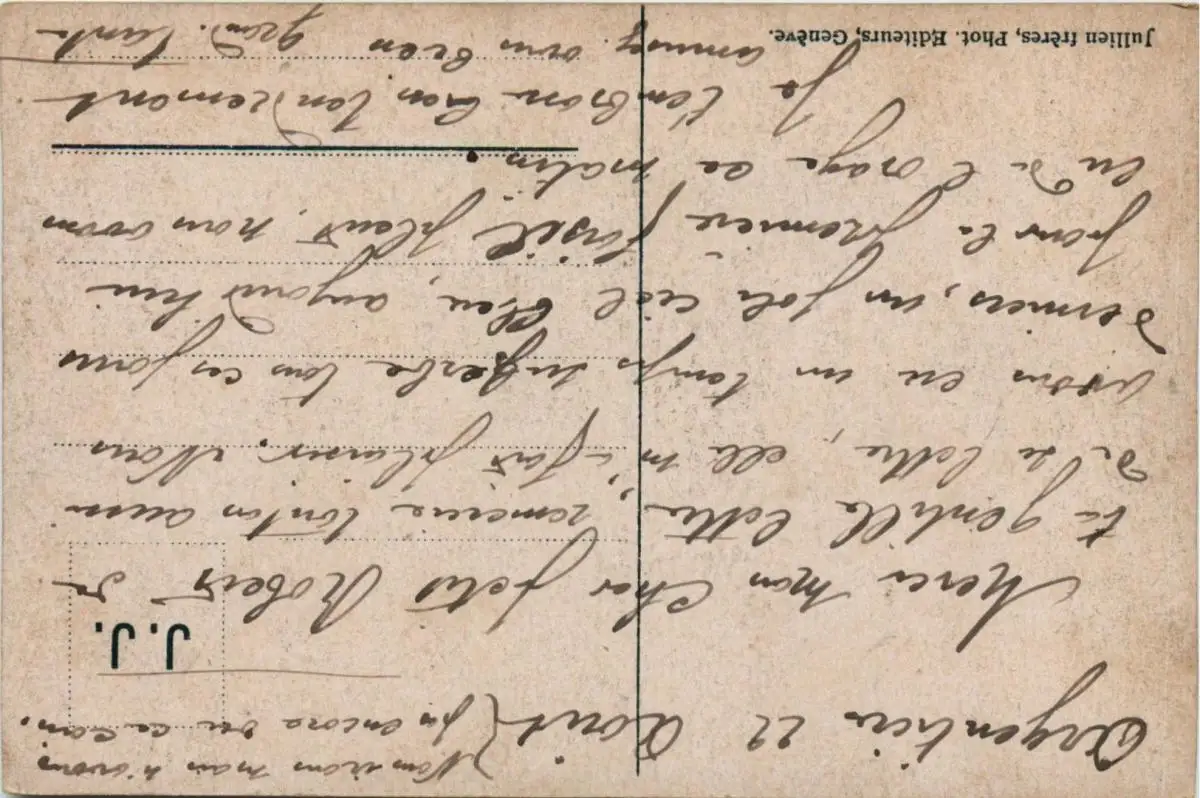 Argentière 22 Août
n'avons
pas encore vu ce coin.
J. J.
Merci mon cher petit Robert de
ta gentille lettre, remercie tonton aussi
de sa lettre, elle m'a fait plaisir. Nous
avons eu un temps superbe tous ces jours
derniers, un joli ciel bleu, aujourd'hui
pour la première fois il pleut, nous avons
eu de l'orage ce matin.
Je t'embrasse bien tendrement
bien
Jullien frères, Phot. Editeurs, Genève.